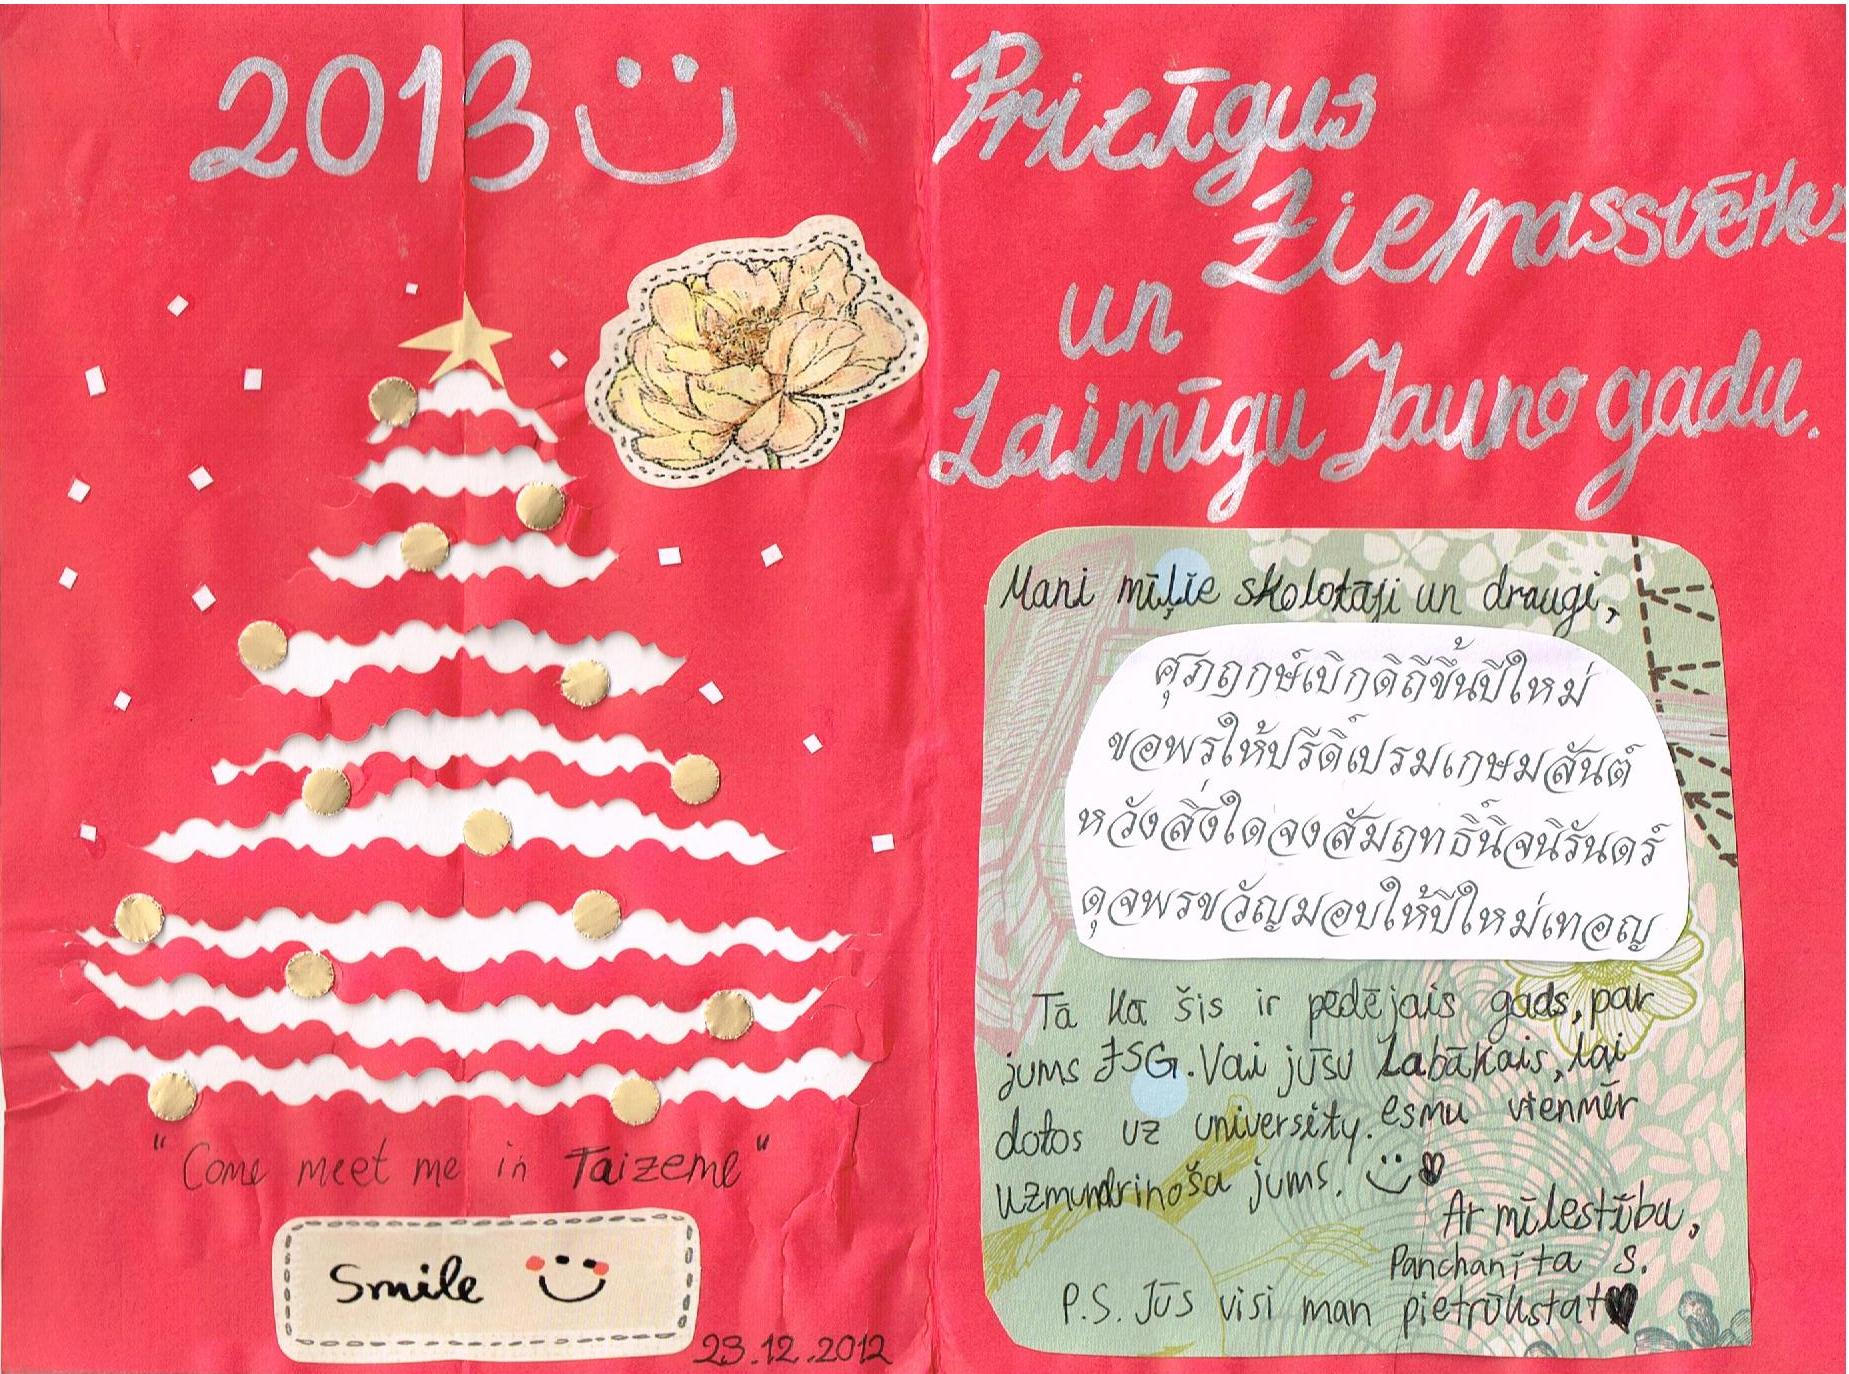 2013
"Come meet me in Taizeme"
Smile
23.12.2012
Priecīgus
Ziemassvētkus
un
Laimīgu Jauno gadu.
Mani mīļie skolotāji un draugi,
ศุภฤกษ์เบิกดิถีขึ้นปีใหม่
ขอพรให้ปรีดิ์เปรมเกษมสันต์
หวังสิ่งใดจงสัมฤทธิ์นิจนิรันดร์
ดุจพรขวัญมอบให้ปีใหม่เทอญ
Tā kā šis ir pēdējais gads, par
jums JSG. Vai jūsu Labākais, lai
dotos uz university. esmu vienmēr
uzmundrinoša jums.
Ar mīlestību,
Panchanita S.
P.S. Jūs visi man pietrūkstat